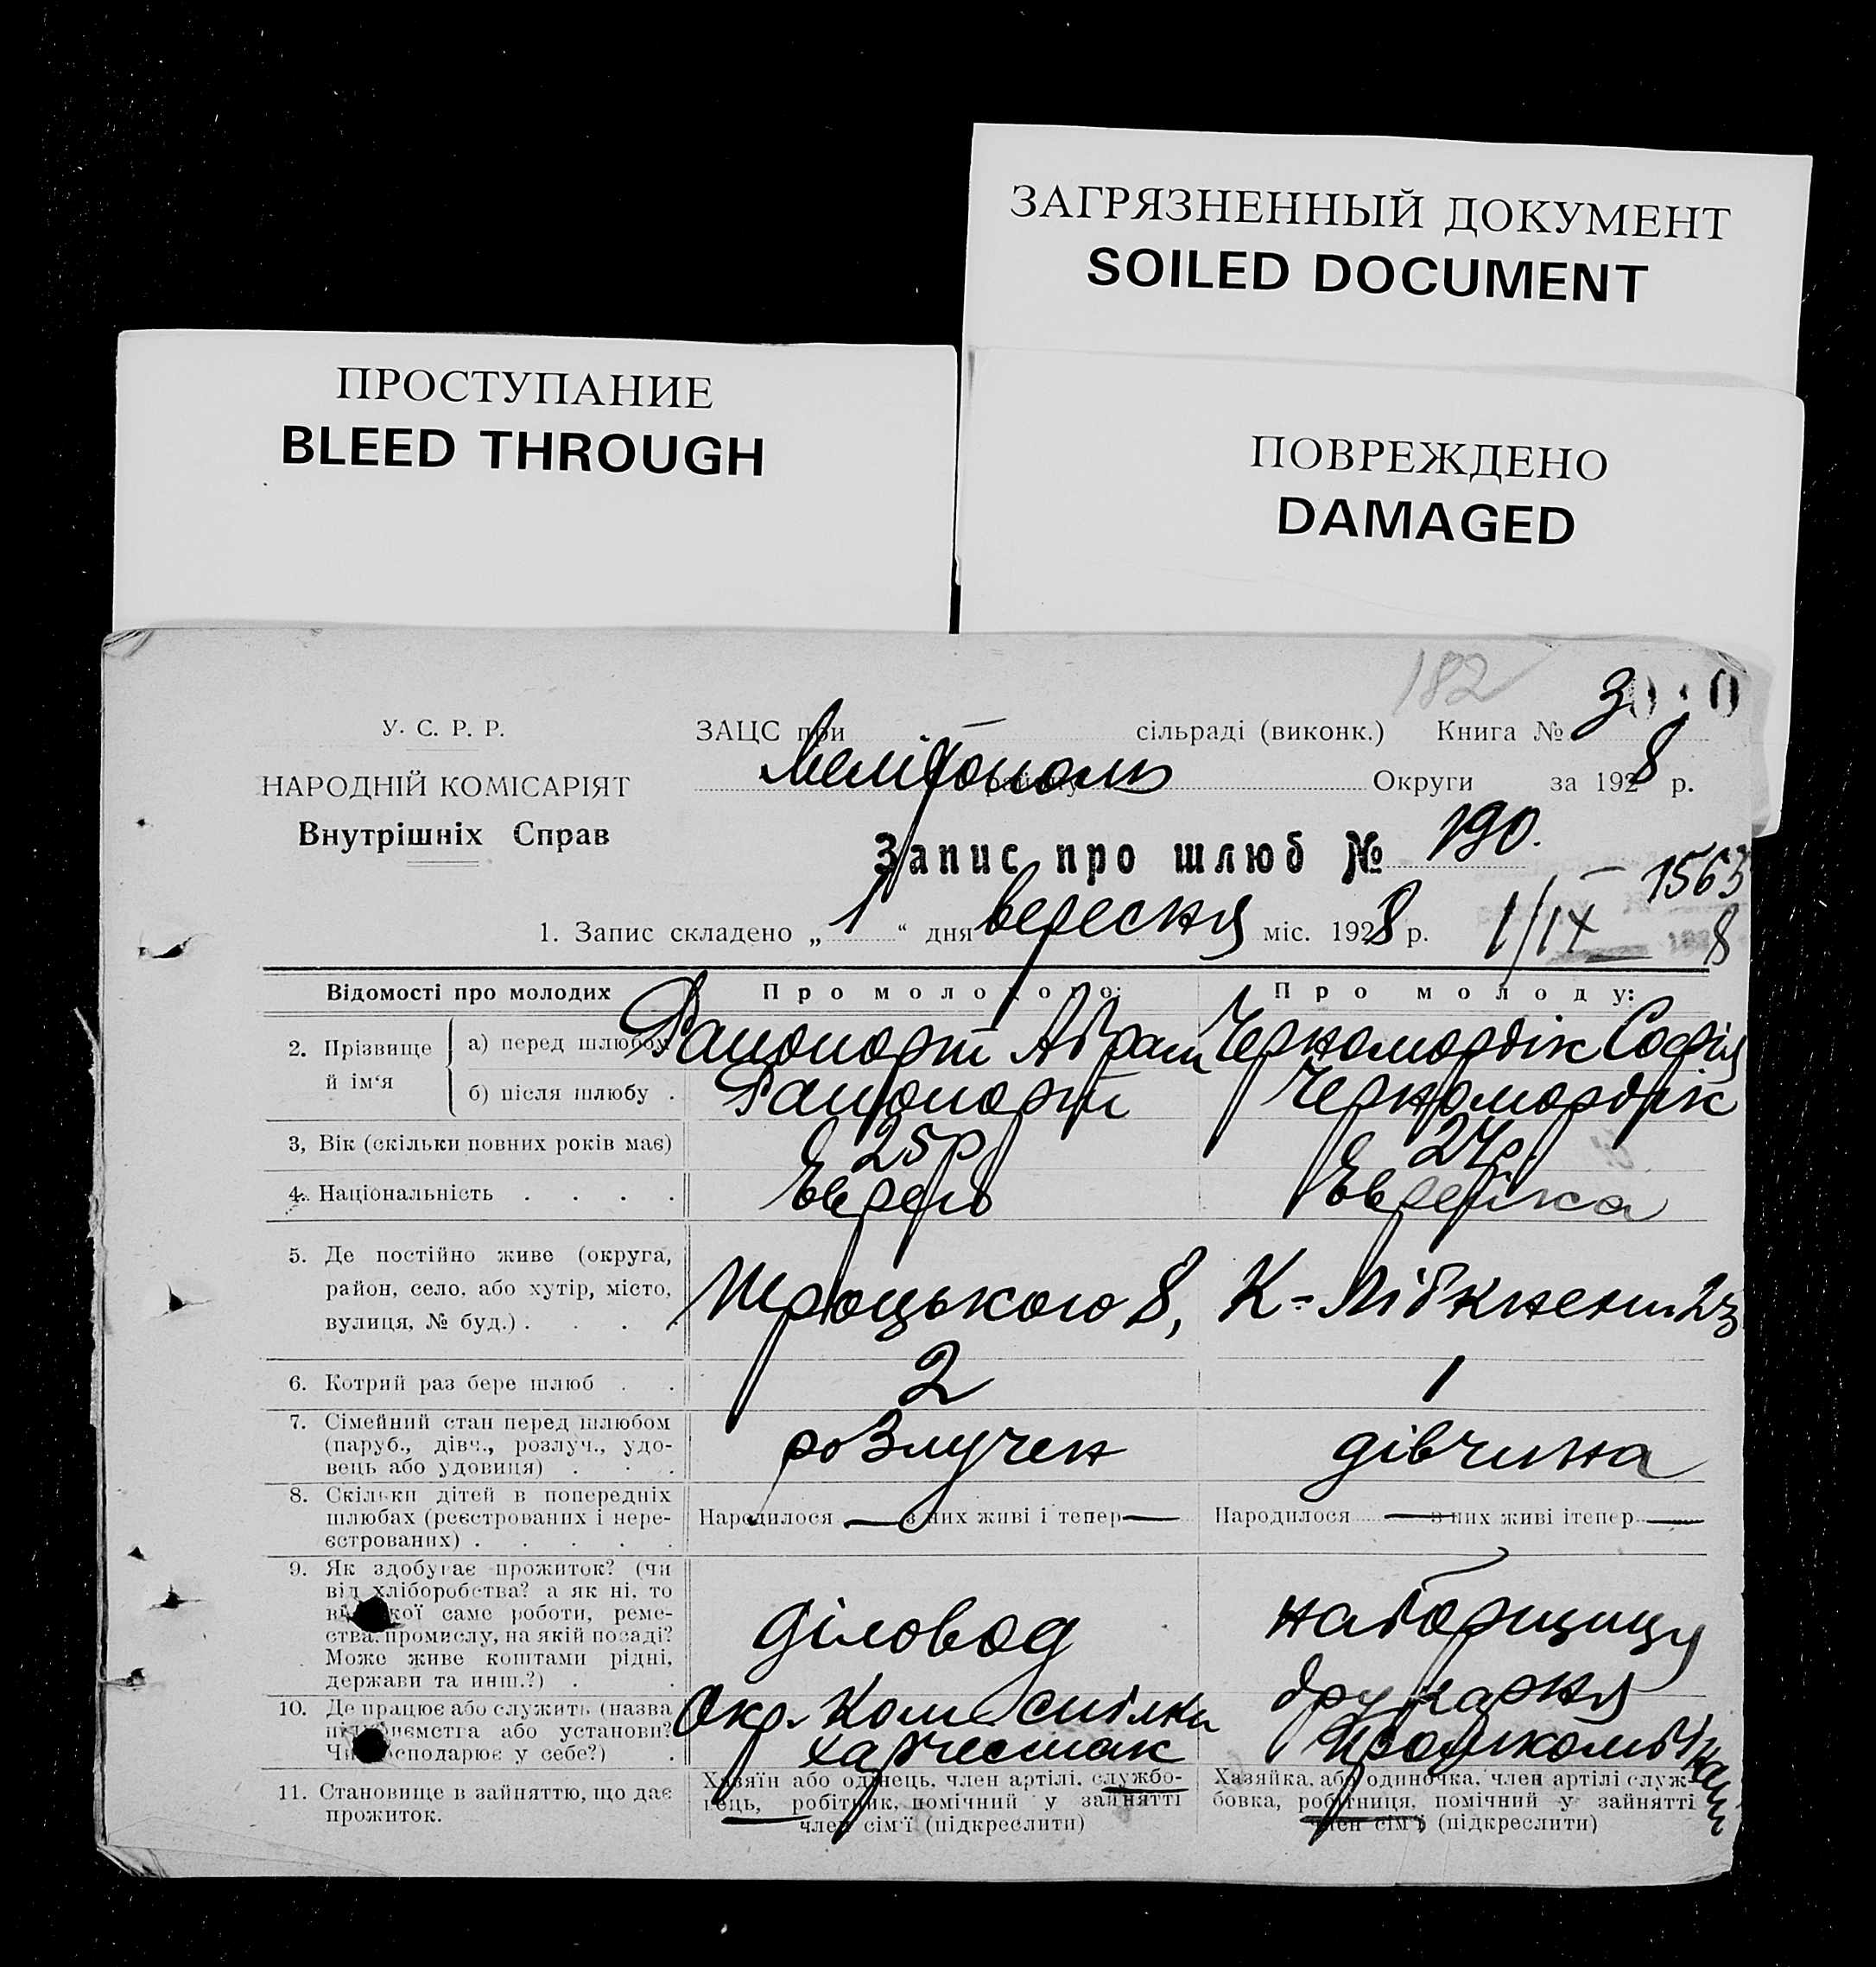 ЗАГРЯЗНЕННЫЙ ДОКУМЕНТ
SOILED DOCUMENT
ПРОСТУПАНИЕ
BLEED THROUGH
ПОВРЕЖДЕНО
DAMAGED
182
У. С. Р. Р.
ЗАЦС при сільраді (виконк.) Книга № 3
НАРОДНІЙ КОМІСАРІЯТ
Мелітополь району Округи за 1928 р.
Внутрішніх Справ
Запис про шлюб № 190.
1563
1. Запис складено „ 1 “ дня вересня міс. 1928 р.
1/IX 8
Відомості про молодих Про молодого: Про молоду:
2. Прізвище й ім‘я
а) перед шлюбом Рапопорт Абрам Черномордік Софія
б) після шлюбу . Рапопорт Черномордік
3, Вік (скільки повних років має) 25 р. 24 р.
4. Національність . . . . Еврей Еврейка
5. Де постійно живе (округа,
район, село, або хутір, місто,
вулиця, № буд.) . . . .
Троцького 8, К-Лібкнехт 23
6. Котрий раз бере шлюб . . 2 1
7. Сімейний стан перед шлюбом
(паруб., дівч., розлуч., удо-
вець або удовиця) . . .
розлучен дівчина
8. Скільки дітей в попередніх
шлюбах (реєстрованих і нере-
єстрованих) . . . . .
Народилося — з них живі і тепер — Народилося — з них живі і тепер —
9. Як здобуває прожиток? (чи
від хліборобства? а як ні, то
від якої саме роботи, реме-
ства, промислу, на якій посаді?
Може живе коштами рідні,
держави та инш.?) . .
діловод наборщиця
10. Де працює або служить (назва
підприємства або установи?
Чи господарює у себе?) .
Окр. Ком спілки
харчесмак
друкарня
11. Становище в зайняттю, що дає
прожиток.
Хазяїн або одинець, член артілі, службо-
вець, робітник, помічний у зайнятті
член сім‘ї (підкреслити)
Хазяйка, або одиночка, член артілі служ-
бовка, робітниця, помічний у зайнятті
член сім‘ї (підкреслити)